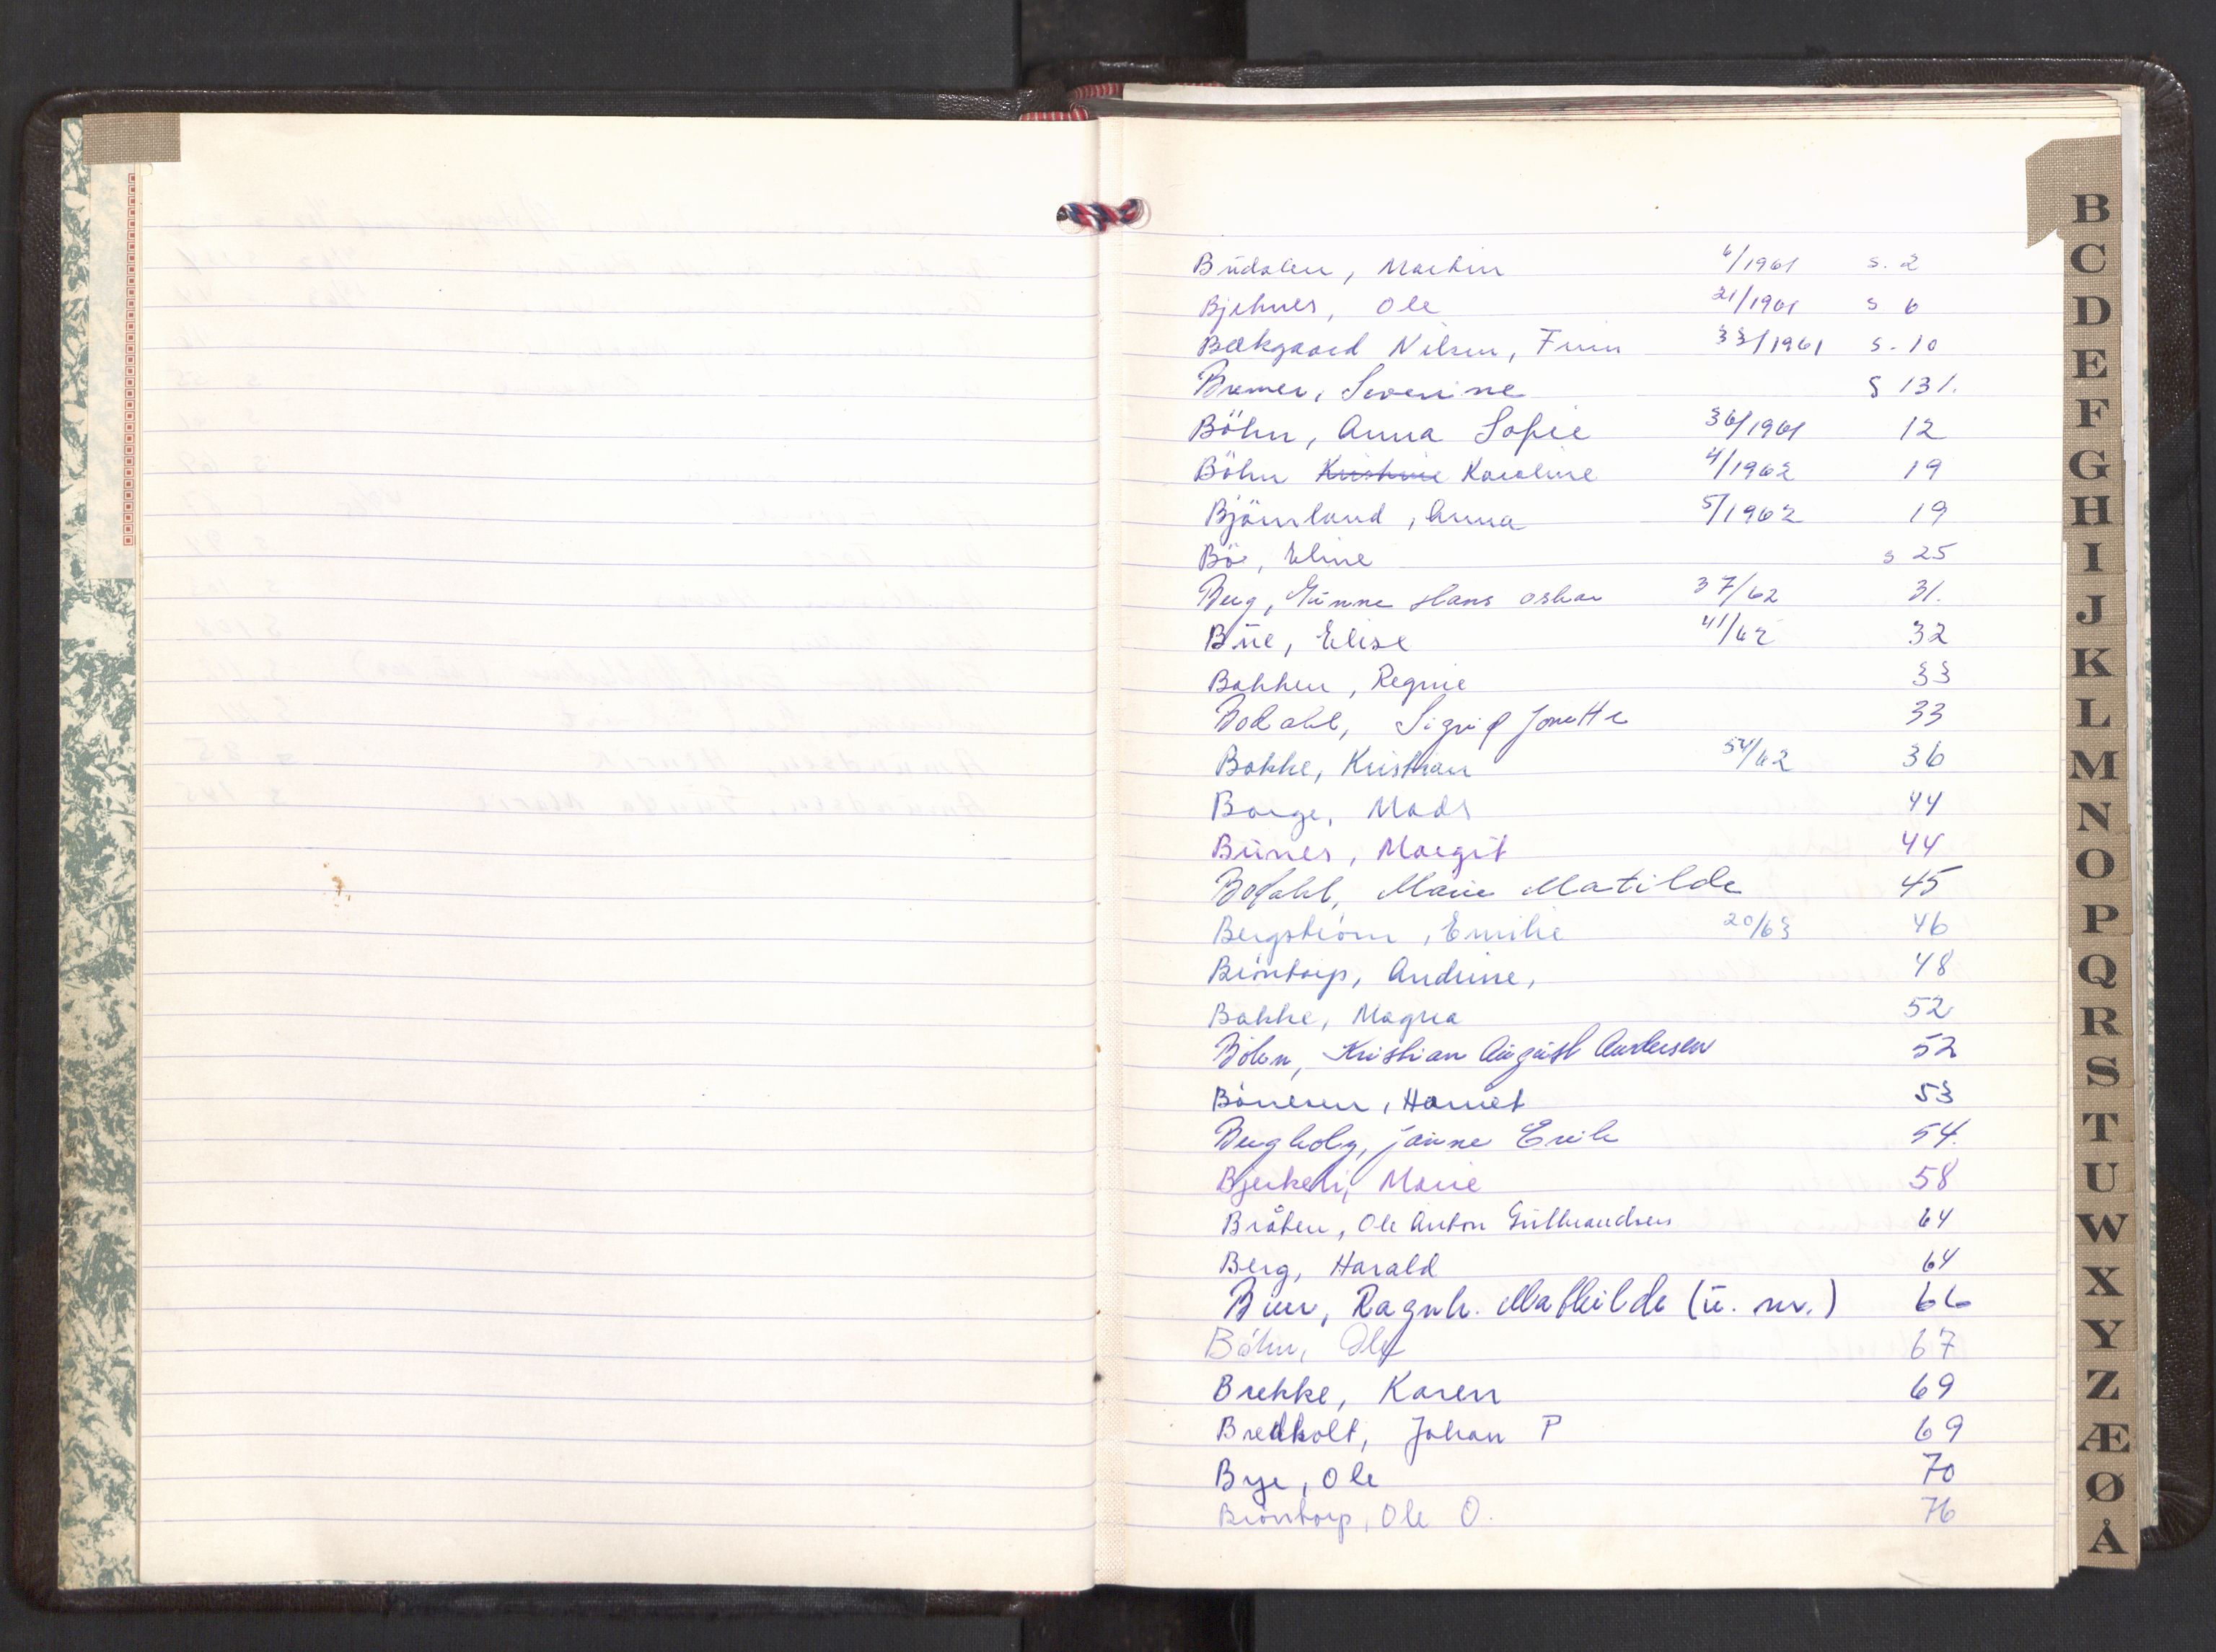 Büdalen, Martin 6/1961 s. 2
Bjelnes, Ole 21/1961 s 6
Bækgaard Nilsen, Finn 33/1961 s. 10
Bremer, Severine S 131.
Böhn, Anna Sofie 36/1961 12
Böhn Kristine Karoline 4/1962 19
Björnland, Anna 5/1962 19
Bö, Eline s 25
Berg, Hans Oskar 37/62 31.
Büe, Elise 41/62 32
Bakken, Regine 33
Bodahl, Sigrid Jonette 33
Bakke, Kristian 54/62 36
Borge, Mads 44
Bünes, Margit 44
Bodahl, Marie Matilde 45
Bergström, Emilie 20/63 46
Bröntorp, Andrine, 48
Bakke, Magna 52
Böhn, Kristian Aügüst Andersen 52
Bönesen, Harriet 53
Bergholz, Emile 54.
Bjerkeli, Marie 58
Bråten, Ole Anton Gülbrandsen 64
Berg, Harald 64
Ragnh. Mathilde (ü. nr.) 66
Böhn, Ole 67
Brekke, Karen 69
Bredholt, Johan P 69
Bye, Ole 70
Bröntorp, Ole O. 76
B
C
D
E
F
G
H
I
J
K
L
M
N
O
P
Q
R
S
T
U
W
X
Y
Z
Æ
Ø
Å